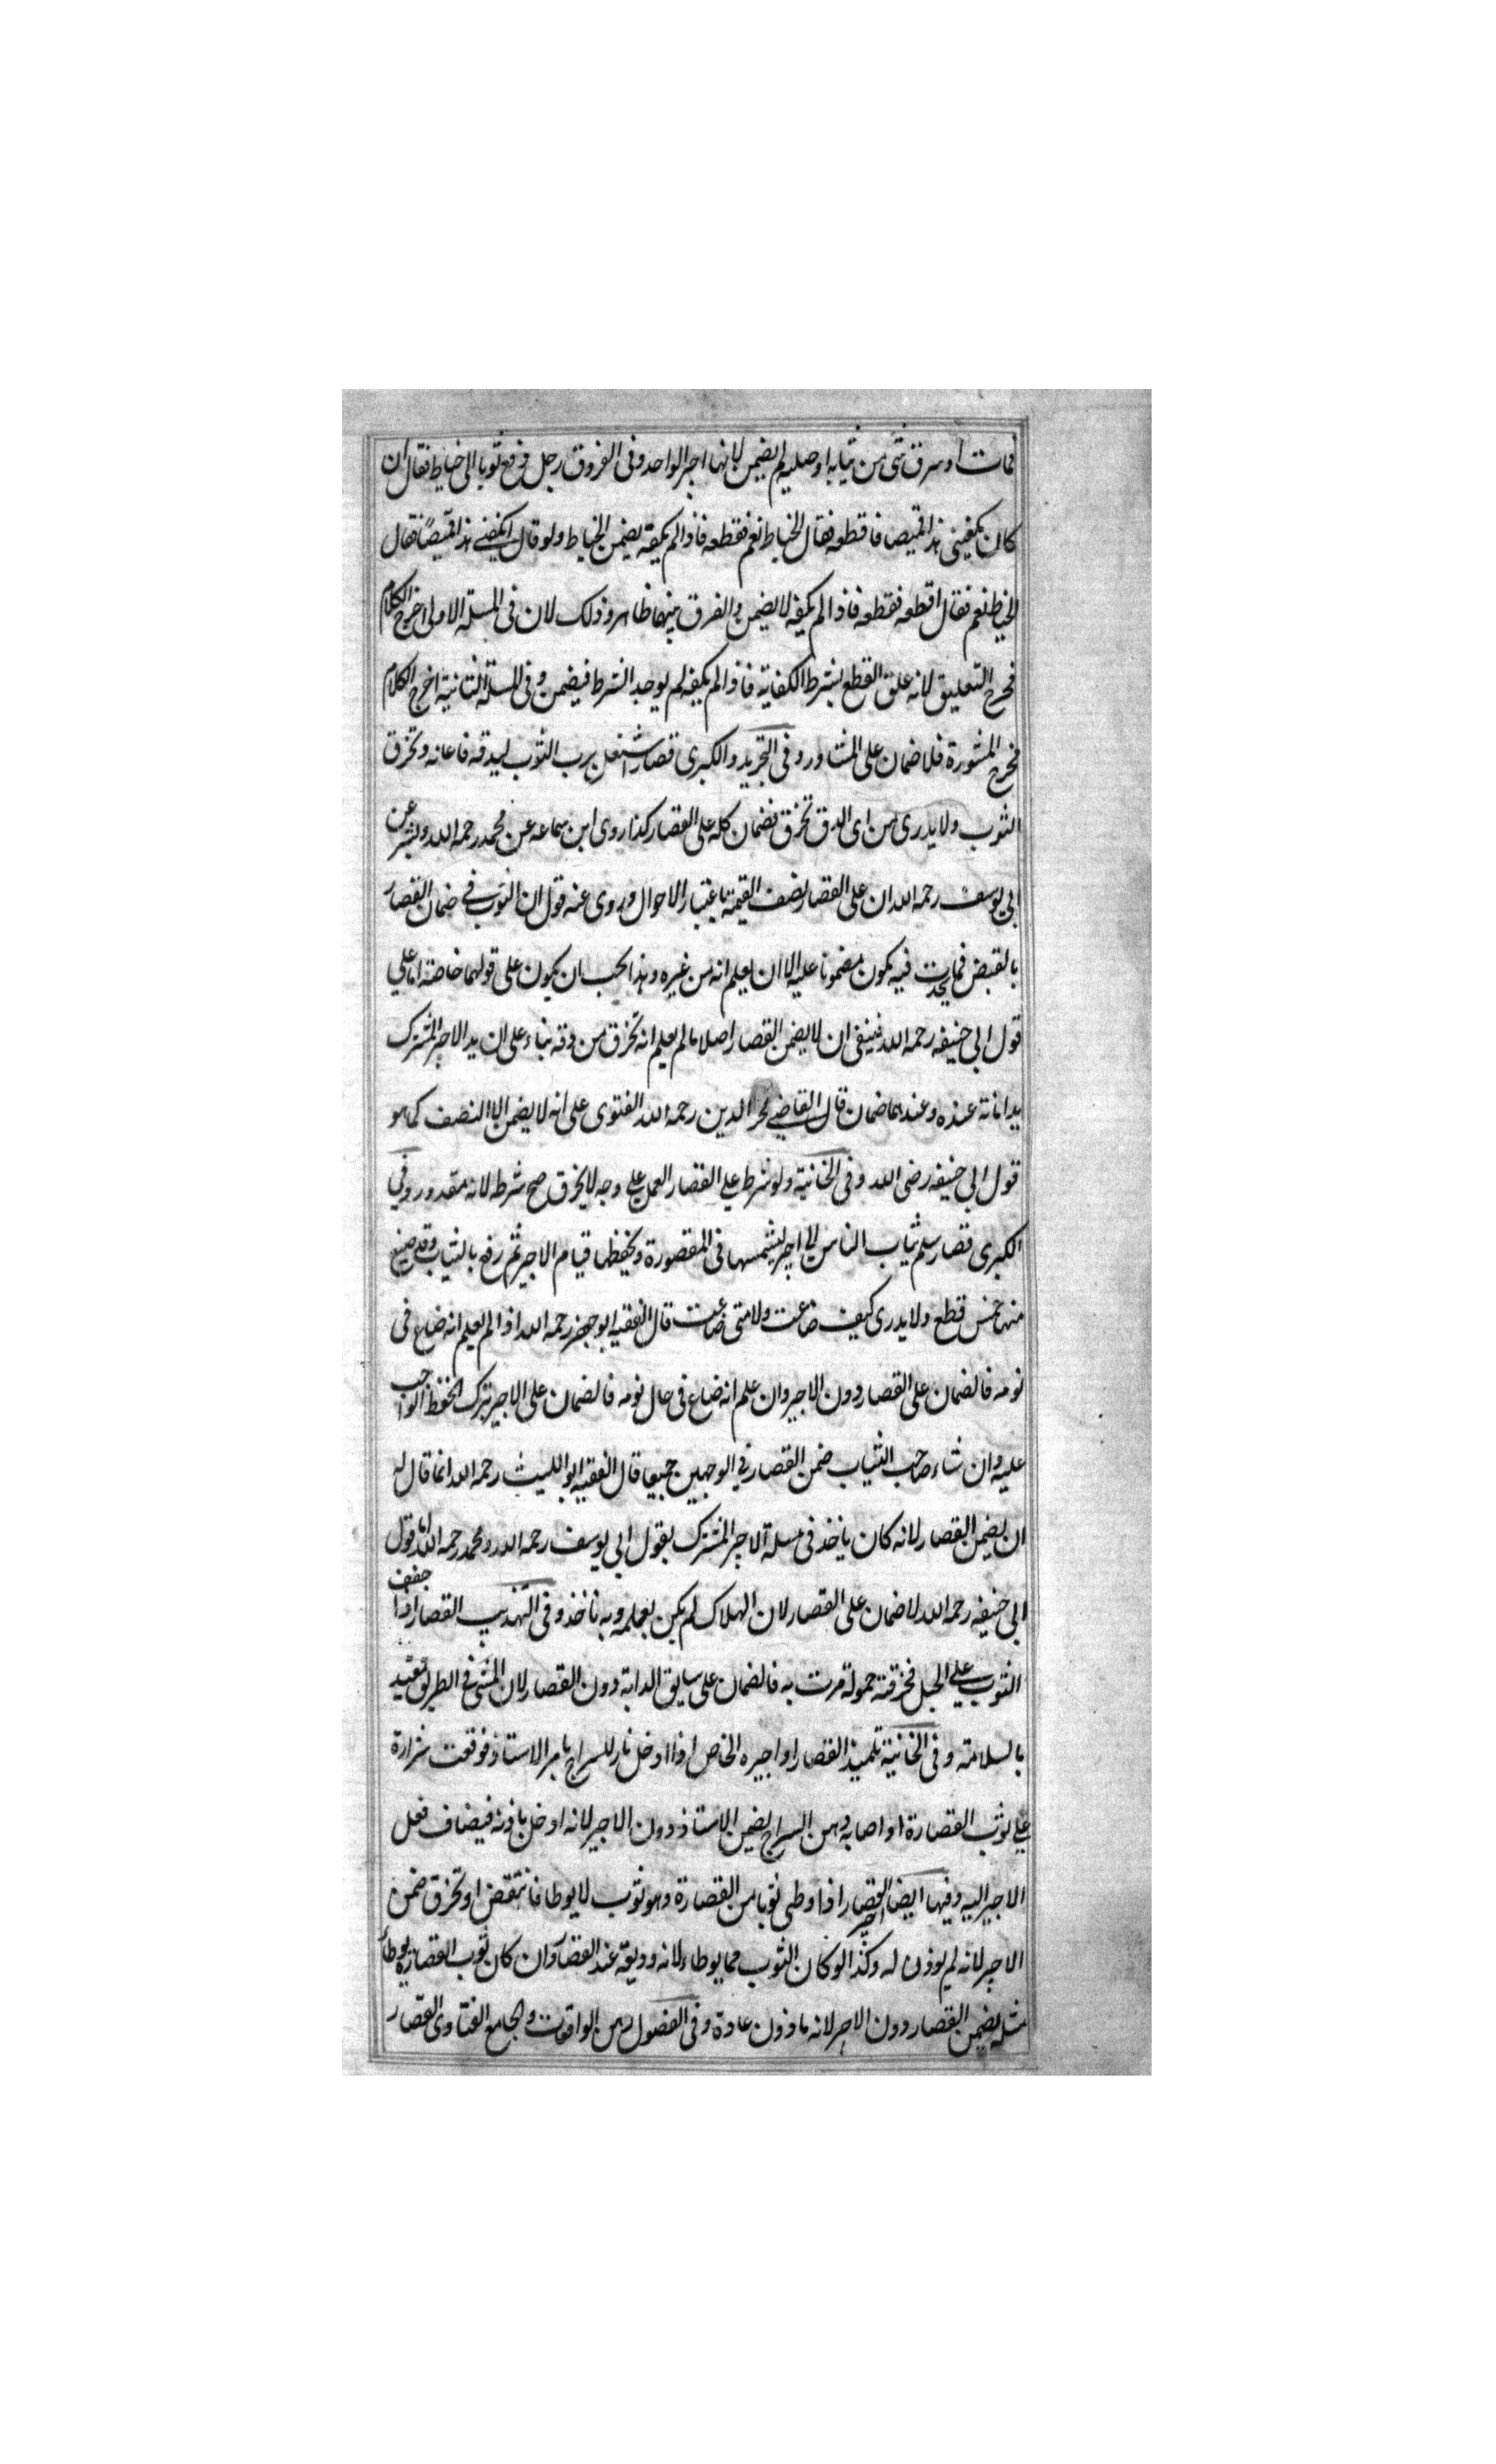 فمات او سرق شئ من ثيابه او حليه لم يضمن لانها اجير الواحد وفى الفروق رجل دفع ثوبا الى خياط فقال ان
كان يكفينى هذا قميصا فاقطعه فقال الخياط نعم فقطعه فاذا لم يكفه يضمن الخياط ولو قال ايكفينى هذا قميصًا فقال
الخياط نعم فقال اقطعه فقطعه فاذا لم يكفه لا يضمن والفرق بينهما ظاهر وذلك لان فى المسئلة الاولى اخرج الكلام
مخرج التعليق لانه علق القطع بشرط الكفاية فاذا لم يكفه لم يوجد الشرط فيضمن وفى المسئلة الثانية اخرج الكلام
مخرج المشورة فلا ضمان على المشاور وفى التجريد والكبرى قصار اشتغل برب الثوب ليدقه فاعانه وتخرق
الثوب ولا يدرى من اى الدق تخرق فضمان كله على القصار كذا روى ابن سماعه عن محمد رحمه الله وبشر عن
ابى يوسف رحمه الله ان على القصار نصف القيمة باعتبار الاحوال وروى عنه قول ان الثوب فى ضمان القصار
بالقبض فما يحدث فيه يكون مضمونا عليه الا ان يعلم انه من غيره وهذا يجب ان يكون على قولهما خاصة اما على
قول ابى حنيفه رحمه الله فينبغى ان لا يضمن القصار اصلا ما لم يعلم انه تخرق من دقه بناء على ان يد الاجير المشترك
يد امانة عنده وعندهما ضمان قال القاضى فخر الدين رحمه الله الفتوى على انه لا يضمن الا النصف كما هو
قول ابى حنيفه رضى الله وفى الخانية ولو شرط على القصار العمل على وجه لا يخرق صح شرطه لانه مقدور وفى
الكبرى قصار سلم ثياب الناس الى اجير ليشمسها فى المقصورة ويحفظها فنام الاجير ثم رفع بالثياب وقد ضيع
منها خمس قطع ولا يدرى كيف ضاعت ولا متى ضاعت قال الفقيه ابو جعفر رحمه الله اذا لم يعلم انه ضاع فى
نومه فالضمان على القصار دون الاجير وان علم انه ضاع فى حال نومه فالضمان على الاجير بترك الحفظ الواجب
عليه وان شاء صاحب الثياب ضمن القصار فى الوجهين جميعا قال الفقيه ابو الليث رحمه الله انما قال له
ان يضمن القصار لانه كان ياخذ فى مسئلة الاجير المشترك بقول ابى يوسف رحمه الله ومحمد رحمه الله اما قول
ابى حنيفه رحمه الله لا ضمان على القصار لان الهلاك لم يكن بعمله وبه ناخذ وفى التهذيب القصار اذا جفف
الثوب على الحبل فخرقته حمولة مرت به فالضمان على سايق الدابة دون القصار لان المشى فى الطريق مقيد
بالسلامة وفى الخانية تلميذ القصار او اجيره الخاص اذا ادخل نار للسراج بامر الاستاذ فوقعت شرارة
على ثوب القصارة او اصابه دهن السراج يضمن الاستاذ دون الاجير لانه ادخل باذنه فيضاف فعل
الاجير اليه وفيها ايضا اجير القصار اذا وطى ثوبا من القصارة وهو ثوب لا يوطا فانتقض او تخرق ضمن
الاجير لانه لم يوذن له وكذا لو كان الثوب مما يوطاء لانه وديعة عند القصار وان كان ثوب القصارة يوطأ
مثله يضمن القصار دون الاجير لانه ماذون عادة وفى الفصول من الواقعات والجامع الفتاوى القصار